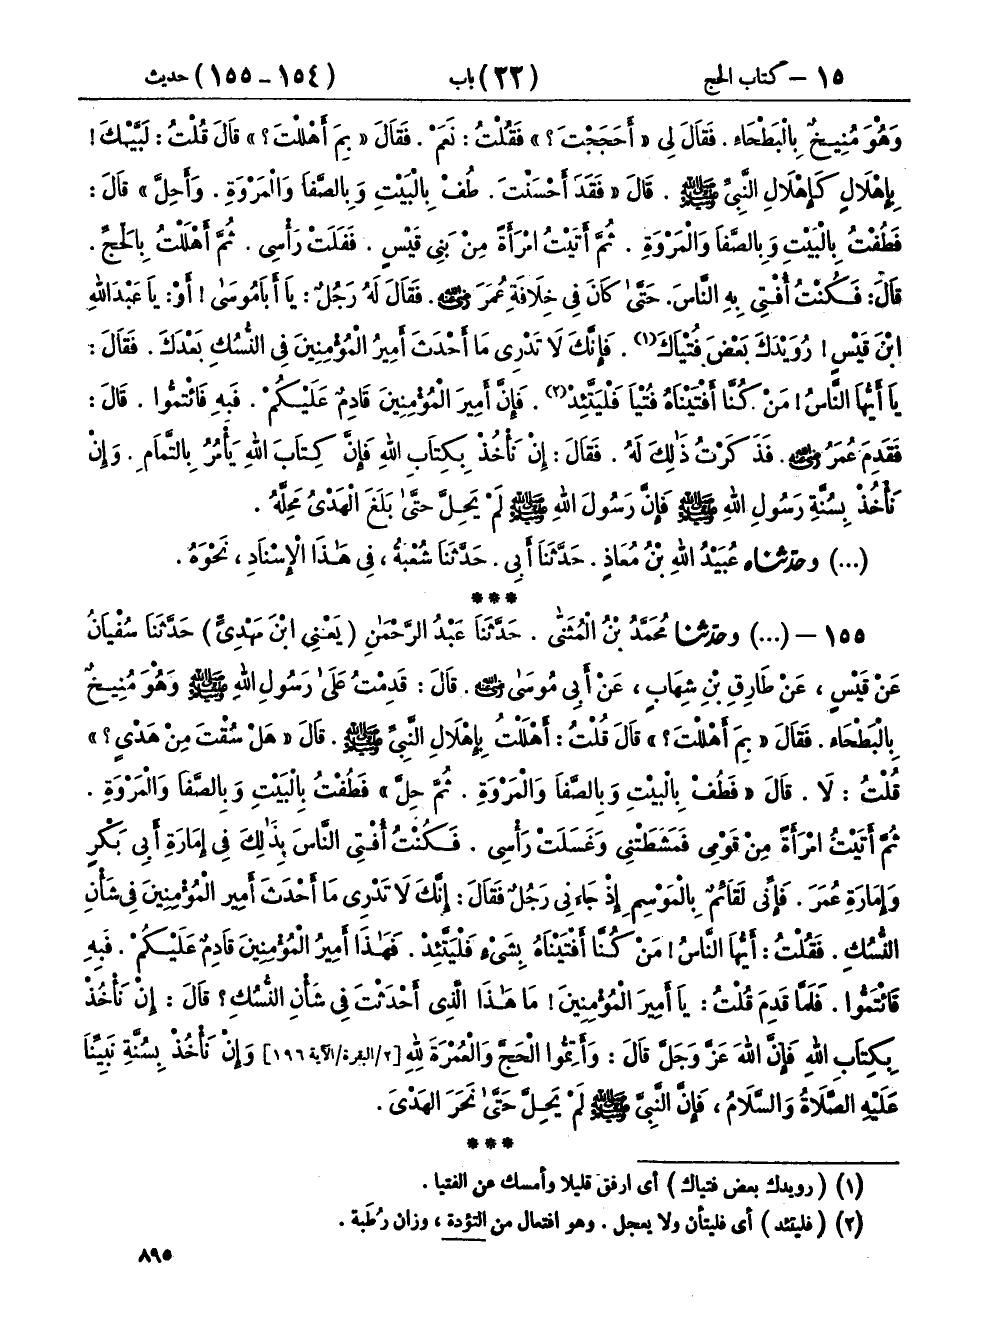 ١٥ - كتاب الحج (٢٢) باب (١٥٤ - ١٥٥) حديث
وَهُوَ مُنِيخٌ بِالْبَطْحَاءِ . فَقَالَ لِى « أَحَجَجْتَ ؟ » فَقُلْتُ : نَعَمْ . فَقَالَ « بِمَ أَهْلَلْتَ ؟ » قَالَ قُلْتُ : لَبَّيْكَ !
بِإِهْلَالٍ كَإِهْلَالِ النَّبِىِّ ﷺ . قَالَ « فَقَدَ أَحْسَنْتَ . طُفْ بِالْبَيْتِ وَبِالصَّفَا وَالْمَرْوَةِ . وَأَحِلَّ » قَالَ :
فَطُفْتُ بِالْبَيْتِ وَبِالصَّفَا وَالْمَرْوَةِ . ثُمَّ أَتَيْتُ امْرَأَةً مِنْ بَنِى قَيْسٍ . فَفَلَتْ رَأْسِى . ثُمَّ أَهْلَلْتُ بِالْحَجِّ .
قَالَ : فَكُنْتُ أُفْتِى بِهِ النَّاسَ. حَتَّىٰ كَانَ فِى خِلَافَةِ عُمَرَ رضي الله عنه. فَقَالَ لَهُ رَجُلٌ : يَا أَبَا مُوسَىٰ ! أَوْ : يَا عَبْدَ اللهِ
ابْنَ قَيْسٍ ! رُوَيْدَكَ بَعْضَ فُتْيَاكَ(١) . فَإِنَّكَ لَا تَدْرِى مَا أَحْدَثَ أَمِيرُ الْمُؤْمِنِينَ فِى النُّسُكِ بَعْدَكَ . فَقَالَ :
يَا أَيُّهَا النَّاسُ ! مَنْ كُنَّا أَفْتَيْنَاهُ فُتْيَا فَلْيَتَّئِدْ(٢) . فَإِنَّ أَمِيرَ الْمُؤْمِنِينَ قَادِمٌ عَلَيْكُمْ . فَبِهِ فَائْتَمُّوا . قَالَ :
فَقَدِمَ عُمَرُ رضي الله عنه. فَذَكَرْتُ ذَٰلِكَ لَهُ . فَقَالَ : إِنْ نَأْخُذْ بِكِتَابِ اللهِ فَإِنَّ كِتَابَ اللهِ يَأْمُرُ بِالتَّمَامِ . وَإِنْ
نَأْخُذْ بِسُنَّةِ رَسُولِ اللهِ ﷺ فَإِنَّ رَسُولَ اللهِ ﷺ لَمْ يَحِلَّ حَتَّىٰ بَلَغَ الْهَدْىُ مَحِلَّهُ .
(...) وحدّثناه عُبَيْدُ اللهِ بْنُ مُعَاذٍ . حَدَّثَنَا أَبِى . حَدَّثَنَا شُعْبَةُ ، فِى هَٰذَا الْإِسْنَادِ ، نَحْوَهُ .
***
١٥٥ - (...) وحدّثنا مُحَمَّدُ بْنُ الْمُثَنَّىٰ . حَدَّثَنَا عَبْدُ الرَّحْمٰنِ (يَعْنِى ابْنَ مَهْدِىٍّ) حَدَّثَنَا سُفْيَانُ
عَنْ قَيْسٍ ، عَنْ طَارِقِ بْنِ شِهَابٍ ، عَنْ أَبِى مُوسَىٰ رضي الله عنه . قَالَ : قَدِمْتُ عَلَىٰ رَسُولِ اللهِ ﷺ وَهُوَ مُنِيخٌ
بِالْبَطْحَاءِ . فَقَالَ « بِمَ أَهْلَلْتَ ؟ » قَالَ قُلْتُ : أَهْلَلْتُ بِإِهْلَالِ النَّبِىِّ ﷺ . قَالَ « هَلْ سُقْتَ مِنْ هَدْىٍ ؟ »
قُلْتُ : لَا . قَالَ « فَطُفْ بِالْبَيْتِ وَبِالصَّفَا وَالْمَرْوَةِ . ثُمَّ حِلَّ » فَطُفْتُ بِالْبَيْتِ وَبِالصَّفَا وَالْمَرْوَةِ .
ثُمَّ أَتَيْتُ امْرَأَةً مِنْ قَوْمِى فَمَشَطَتْنِى وَغَسَلَتْ رَأْسِى . فَكُنْتُ أُفْتِى النَّاسَ بِذَٰلِكَ فِى إِمَارَةِ أَبِى بَكْرٍ
وَإِمَارَةِ عُمَرَ . فَإِنِّى لَقَائِمٌ بِالْمَوْسِمِ إِذْ جَاءَنِى رَجُلٌ فَقَالَ : إِنَّكَ لَا تَدْرِى مَا أَحْدَثَ أَمِيرُ الْمُؤْمِنِينَ فِى شَأْنِ
النُّسُكِ . فَقُلْتُ : أَيُّهَا النَّاسُ ! مَنْ كُنَّا أَفْتَيْنَاهُ بِشَىْءٍ فَلْيَتَّئِدْ . فَهَٰذَا أَمِيرُ الْمُؤْمِنِينَ قَادِمٌ عَلَيْكُمْ . فَبِهِ
فَائْتَمُّوا . فَلَمَّا قَدِمَ قُلْتُ : يَا أَمِيرَ الْمُؤْمِنِينَ ! مَا هَٰذَا الَّذِى أَحْدَثْتَ فِى شَأْنِ النُّسُكِ ؟ قَالَ : إِنْ نَأْخُذْ
بِكِتَابِ اللهِ فَإِنَّ اللهَ عَزَّ وَجَلَّ قَالَ : وَأَتِمُّوا الْحَجَّ وَالْعُمْرَةَ لِلهِ [٢/البقرة/الآية ١٩٦] وَإِنْ نَأْخُذْ بِسُنَّةِ نَبِيِّنَا
عَلَيْهِ الصَّلَاةُ وَالسَّلَامُ ، فَإِنَّ النَّبِىَّ ﷺ لَمْ يَحِلَّ حَتَّىٰ نَحَرَ الْهَدْىَ .
***
(١) (رويدك بعض فتياك) أى ارفق قليلا وأمسك عن الفتيا .
(٢) (فليتئد) أى فليتأن ولا يعجل . وهو افتعال من التؤدة ، وزان رُطَبة .
٨٩٥